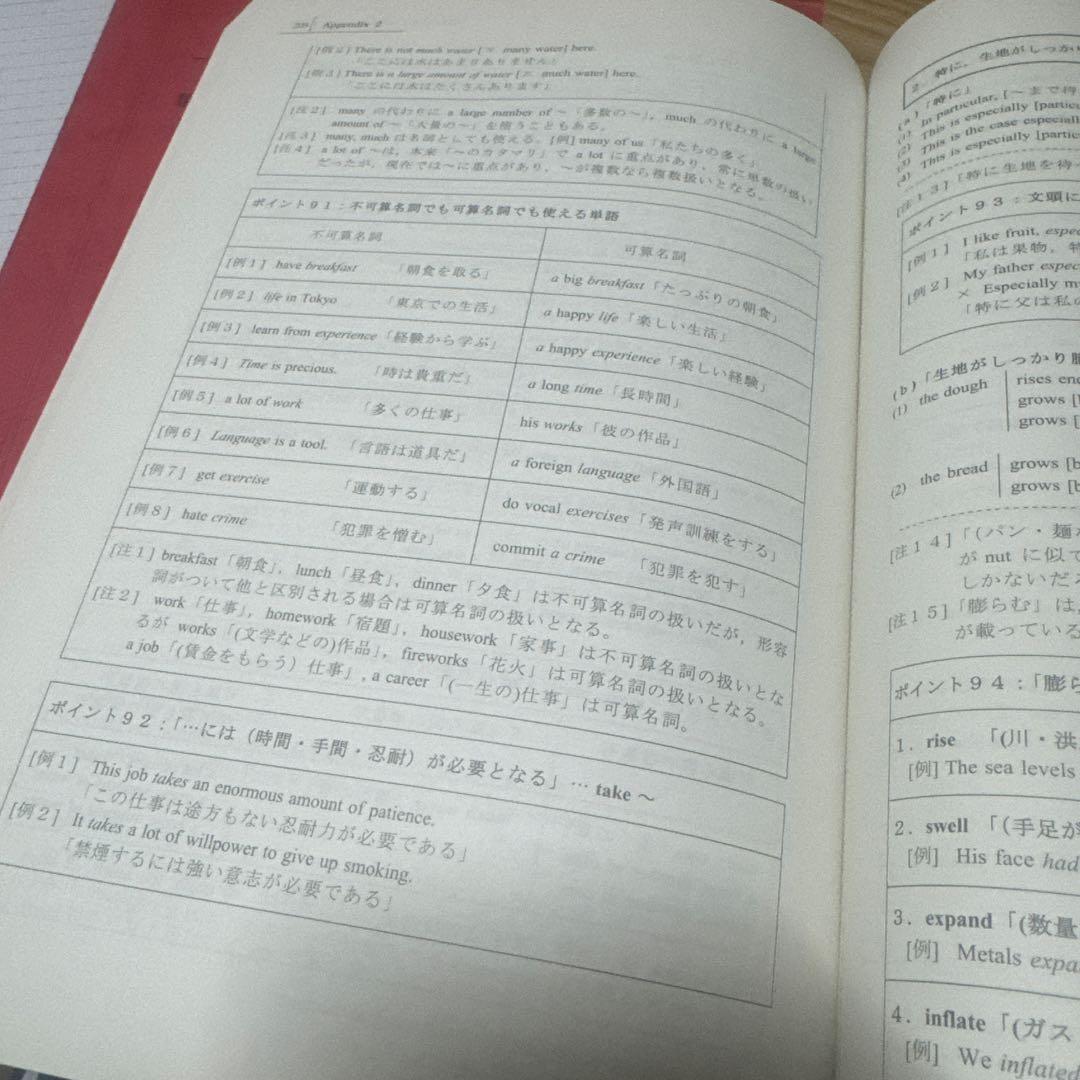 Appendix 2
[例2] There is not much water [× many water] here.
「ここには水はあまりありません」
[例3] There is a large amount of water [× much water] here.
「ここには水はたくさんあります」
[注2] many の代わりに a large number of ～「多数の～」, much の代わりに a large
amount of ～「大量の～」を使うこともある。
[注3] many, much は名詞としても使える。[例] many of us「私たちの多く」
[注4] a lot of ～は, 本来「～のカタマリ」で a lot に重点があり, 常に単数の扱い
だったが, 現在では～に重点があり, ～が複数なら複数扱いとなる。
ポイント91:不可算名詞でも可算名詞でも使える単語
不可算名詞 可算名詞
[例1] have breakfast 「朝食を取る」 a big breakfast「たっぷりの朝食」
[例2] life in Tokyo 「東京での生活」 a happy life「楽しい生活」
[例3] learn from experience「経験から学ぶ」 a happy experience「楽しい経験」
[例4] Time is precious. 「時は貴重だ」 a long time「長時間」
[例5] a lot of work 「多くの仕事」 his works「彼の作品」
[例6] Language is a tool. 「言語は道具だ」 a foreign language「外国語」
[例7] get exercise 「運動する」 do vocal exercises「発声訓練をする」
[例8] hate crime 「犯罪を憎む」 commit a crime 「犯罪を犯す」
[注1] breakfast「朝食」, lunch「昼食」, dinner「夕食」は不可算名詞の扱いだが, 形容
詞がついて他と区別される場合は可算名詞の扱いとなる。
[注2] work「仕事」, homework「宿題」, housework「家事」は不可算名詞の扱いとな
るが works「(文学などの)作品」, fireworks「花火」は可算名詞の扱いとなる。
a job「(賃金をもらう) 仕事」, a career「(一生の)仕事」は可算名詞。
ポイント92:「…には (時間・手間・忍耐) が必要となる」… take ～
[例1] This job takes an enormous amount of patience.
「この仕事は途方もない忍耐力が必要である」
[例2] It takes a lot of willpower to give up smoking.
「禁煙するには強い意志が必要である」
2. 特に, 生地がしっか
(a)「特に」
(1) In particular, [～まで待
(2) This is especially [partic
(3) This is the case especiall
(4) This is especially [parti
[注13]「特に生地を待
ポイント93:文頭に
[例1] I like fruit, espec
「私は果物, 特
[例2] My father espe
× Especially my
「特に父は私の
(b)「生地がしっかり膨
(1) the dough rises eno
grows [b
grows [
(2) the bread grows [b
grows [b
[注14]「(パン・麺
が nut に似て
しかないだろ
[注15]「膨らむ」は,
が載っている
ポイント94:「膨ら
1. rise 「(川・洪
[例] The sea levels
2. swell 「(手足が
[例] His face had
3. expand「(数量
[例] Metals expa
4. inflate「(ガス
[例] We inflated